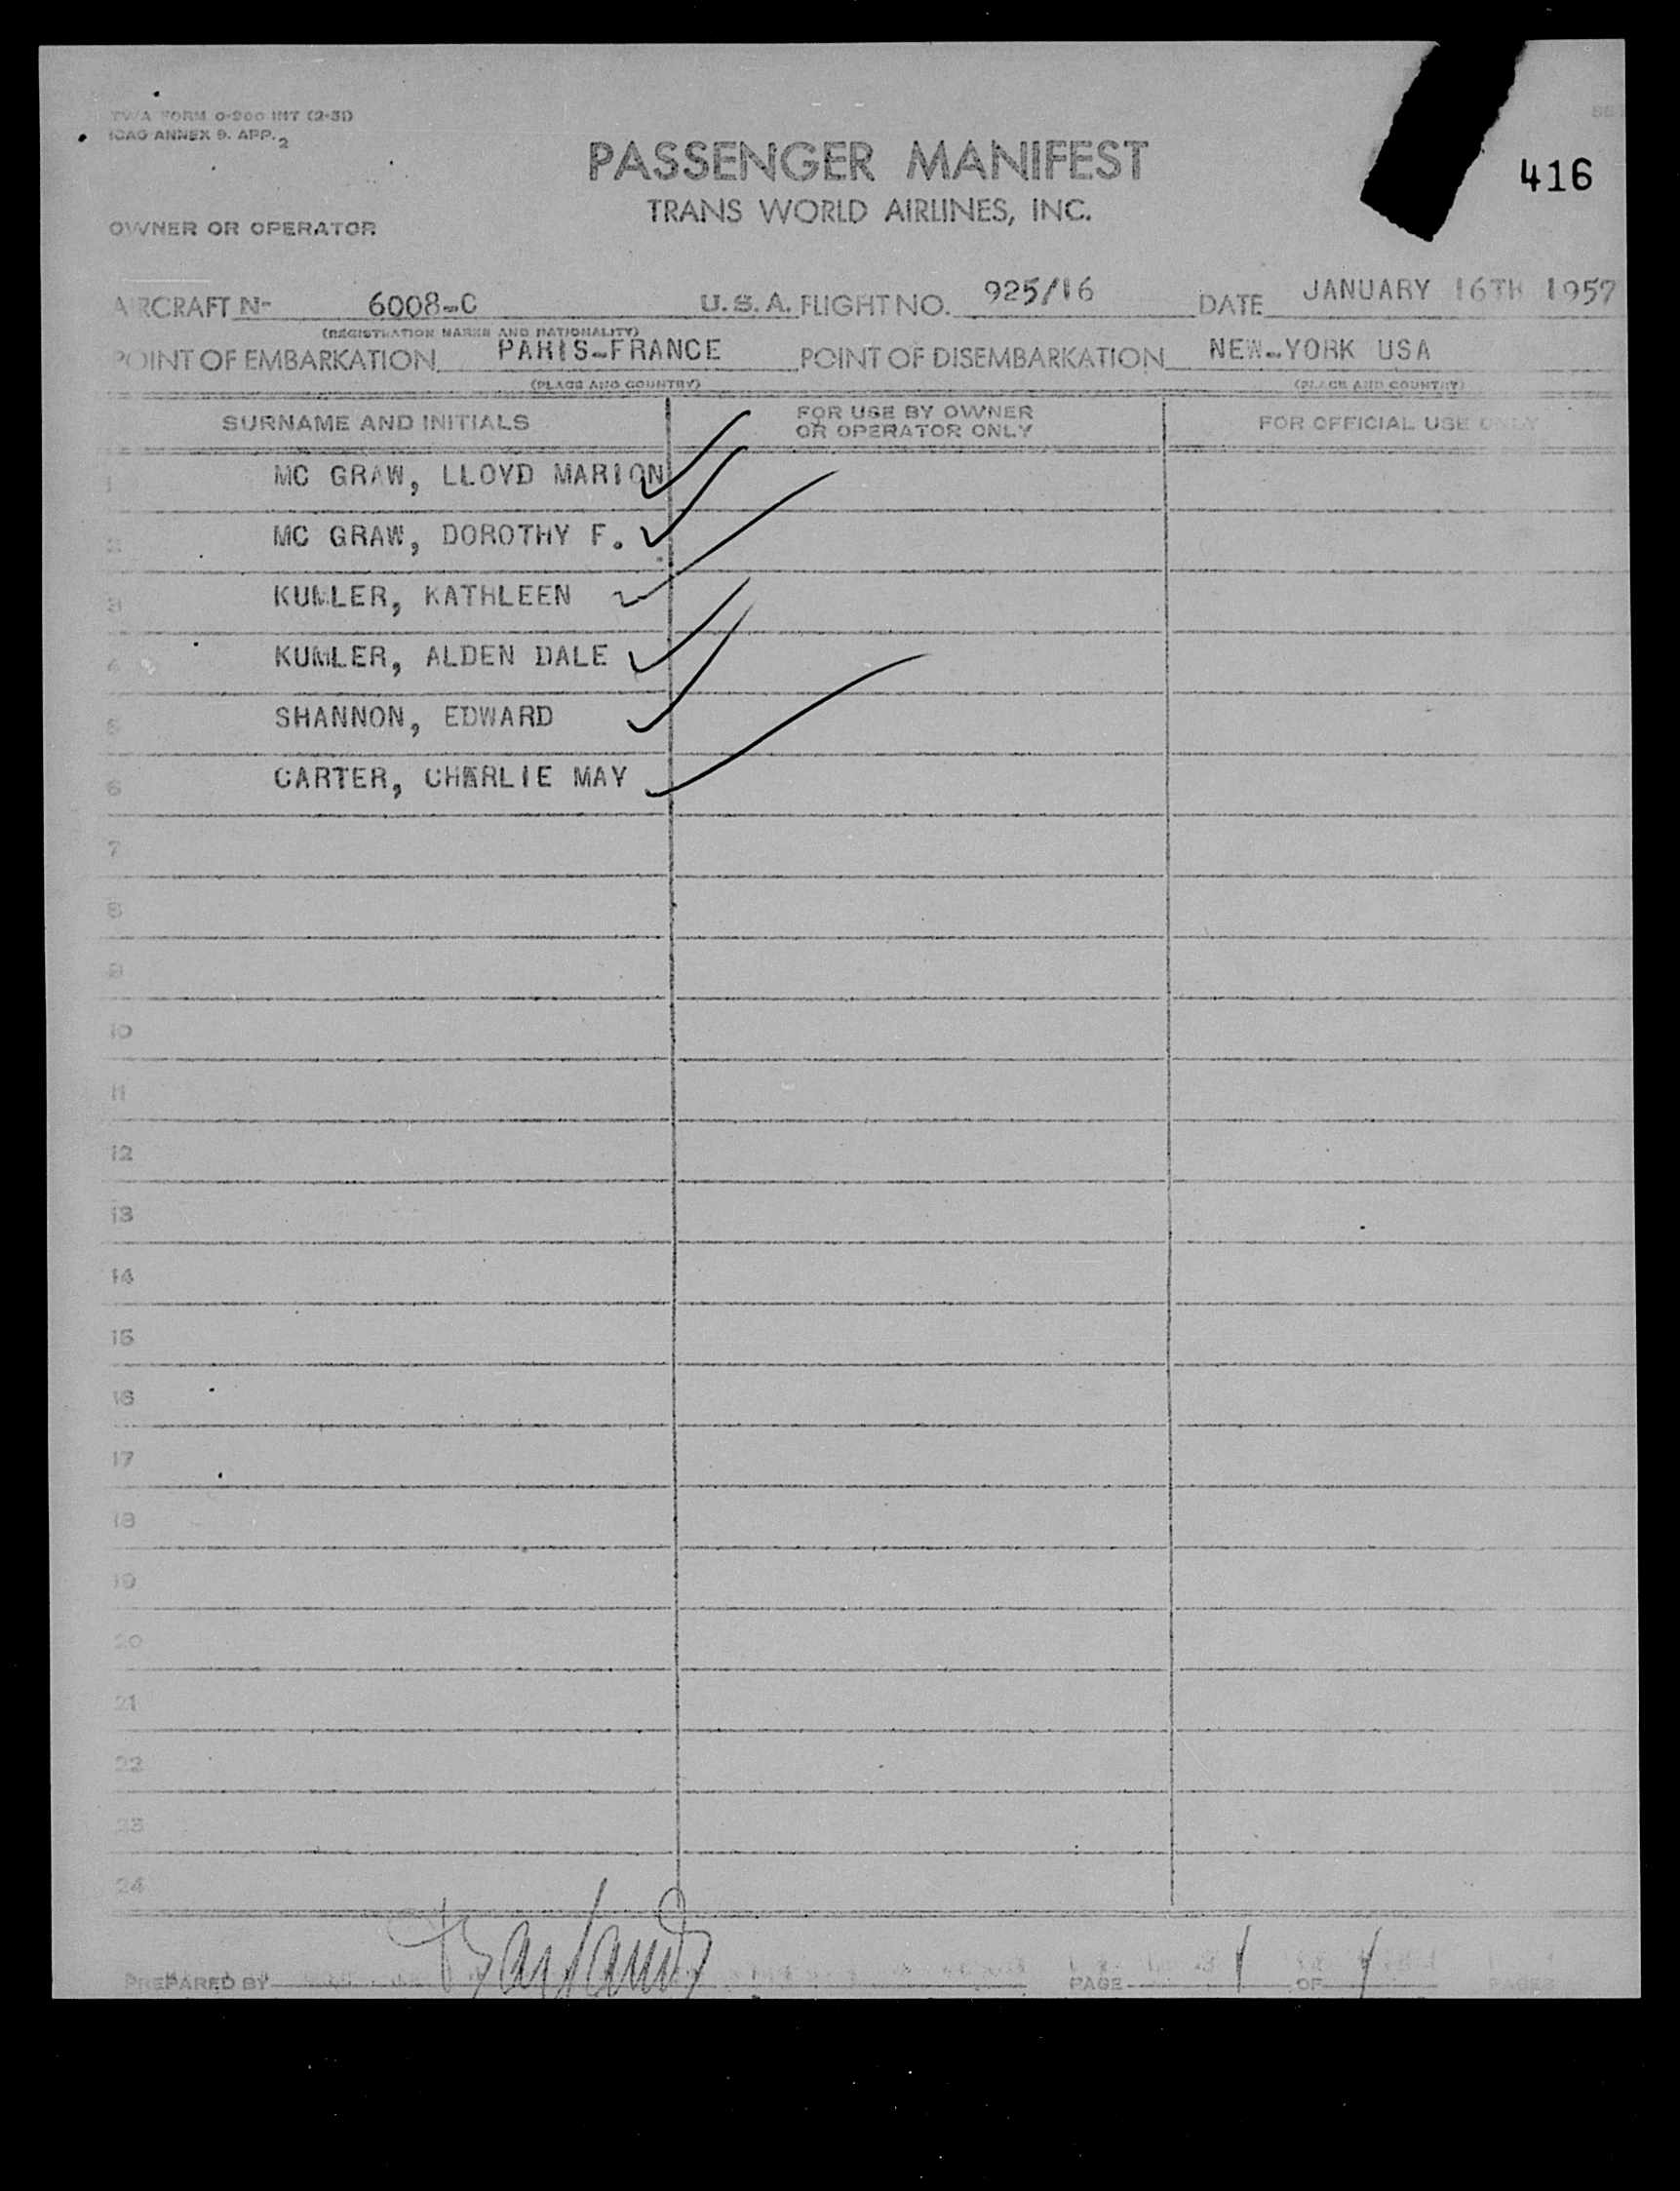 TWA FORM 0-200 INT (2-51)
ICAO ANNEX 9. APP. 2
PASSENGER MANIFEST
416
TRANS WORLD AIRLINES, INC.
OWNER OR OPERATOR
AIRCRAFT No 6008-C U.S.A. FLIGHT NO. 925/16 DATE JANUARY 16TH 1957
(REGISTRATION MARKS AND NATIONALITY)
POINT OF EMBARKATION PARIS-FRANCE POINT OF DISEMBARKATION NEW-YORK USA
(PLACE AND COUNTRY) (PLACE AND COUNTRY)
SURNAME AND INITIALS FOR USE BY OWNER OR OPERATOR ONLY FOR OFFICIAL USE ONLY
1 MC GRAW, LLOYD MARION
2 MC GRAW, DOROTHY F.
3 KUMLER, KATHLEEN
4 KUMLER, ALDEN DALE
5 SHANNON, EDWARD
6 CARTER, CHARLIE MAY
7
8
9
10
11
12
13
14
15
16
17
18
19
20
21
22
23
24
PREPARED BY PAGE 1 OF 1 PAGES